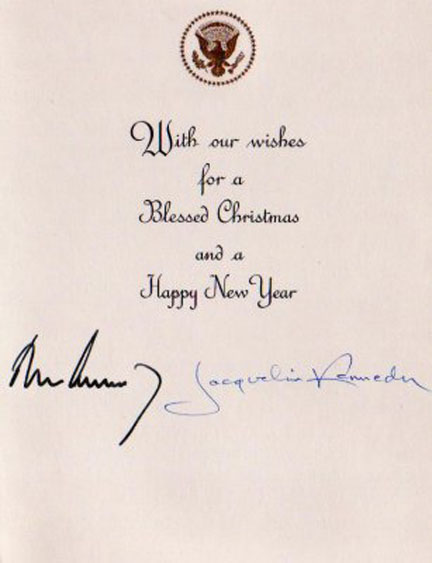 With our wishes
for a
Blessed Christmas
and a
Happy New Year
Jacqueline Kennedy